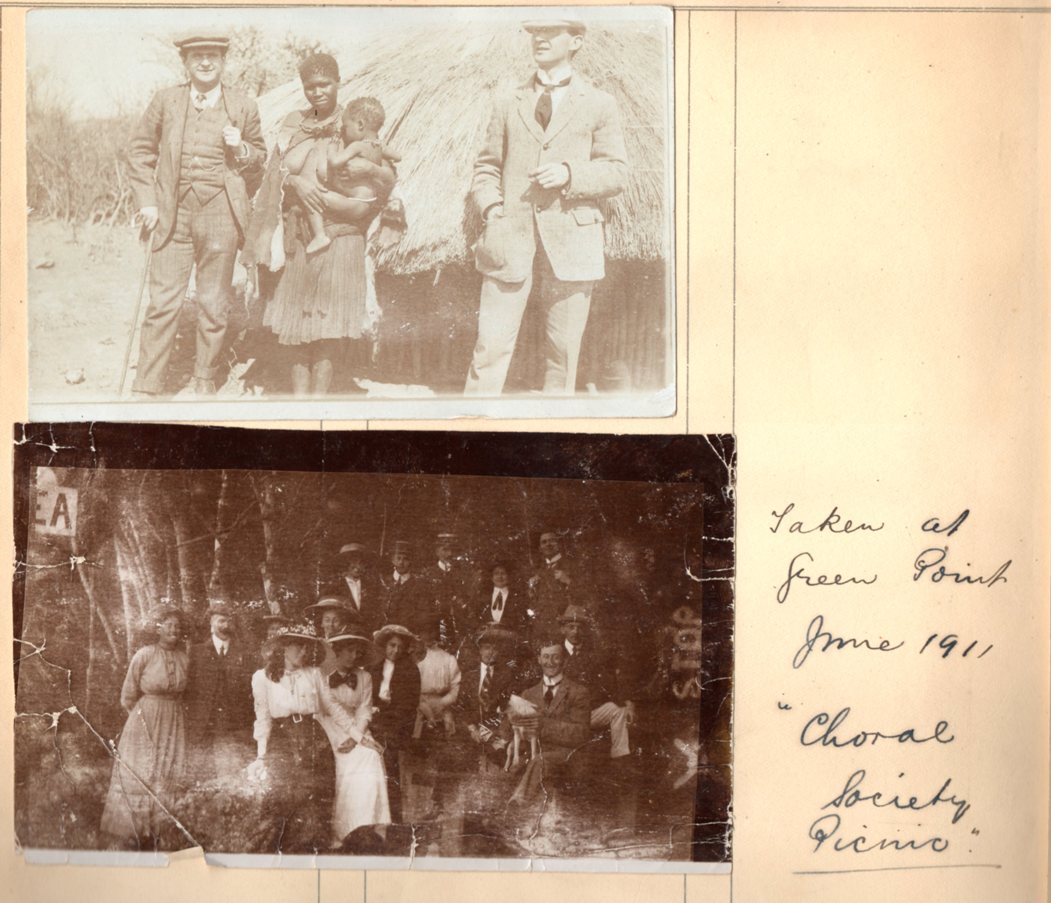 EA
STOP
Taken at
Green Point
June 1911
"Choral
Society
Picnic".